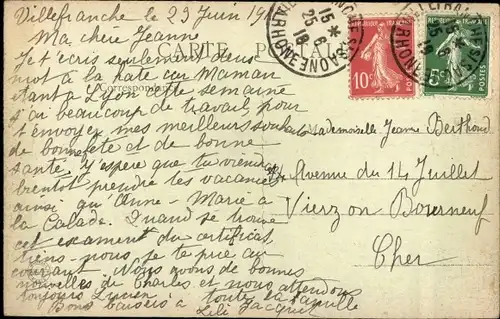 Villefranche le 23 Juin 19
Ma chère Jeanne
CARTE POSTALE
Correspondance
Je t'écris seulement deux
mot à la hâte car Maman
étant à Lyon cette semaine
j'ai beaucoup de travail, pour
t'envoyer mes meilleurs souhaits
de bonne fête et de bonne
santé. J'espère que tu viendras
bientôt prendre tes vacances
ainsi qu'Anne-Marie à
la Calade. Quand se trouve
cet examen du certificat,
tiens-nous je te prie au
courant. Nous avons de bonnes
nouvelles de Charles et nous attendons
toujours Lucien.
Bons baisers à toute la famille
Lili Jacquet
VILLEFRANCHE S SAONE
RHONE
15 *
25 6
18
10c
5c
POSTES
Mademoiselle Jeanne Berthoud
Avenue du 14 Juillet
Vierzon Bourgneuf
Cher